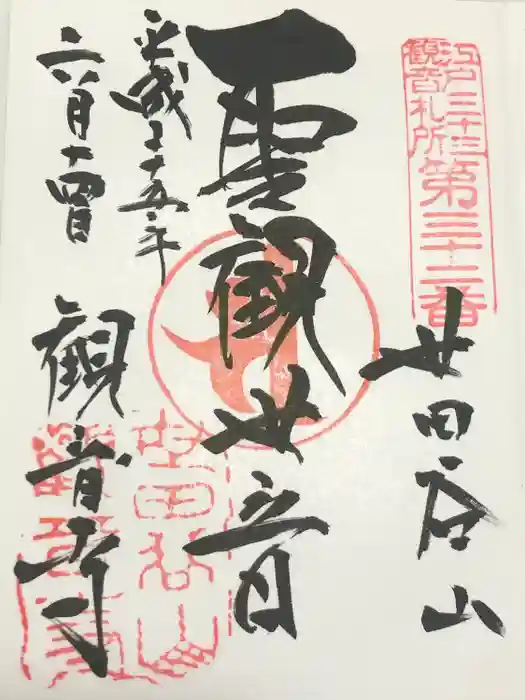 江戸三十三
観音札所
第三十二番
世田谷山
聖観世音
平成二十五年
六月十四日
観音寺
世田谷山
観音寺